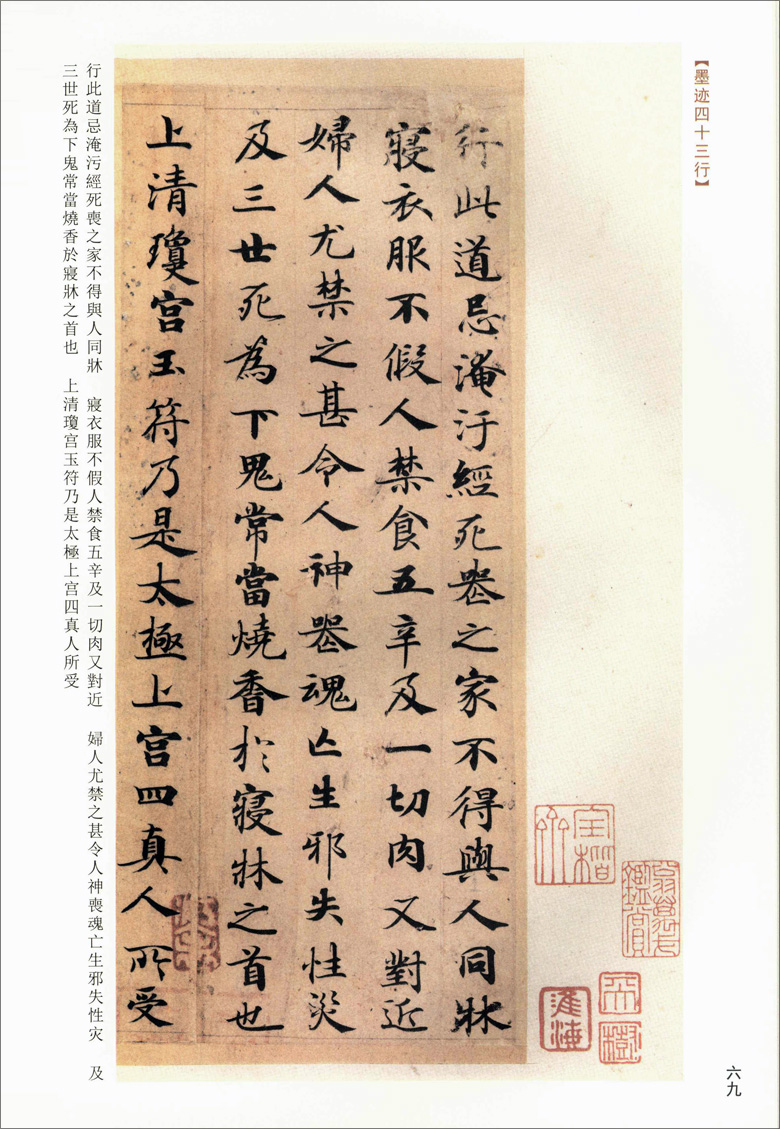 【墨迹四十三行】
行此道忌淹污經死喪之家不得與人同牀
寢衣服不假人禁食五辛及一切肉又對近
婦人尤禁之甚令人神喪魂亡生邪失性災
及三世死為下鬼常當燒香於寢牀之首也
上清瓊宫玉符乃是太極上宫四真人所受
行此道忌淹污經死喪之家不得與人同牀 寢衣服不假人禁食五辛及一切肉又對近 婦人尤禁之甚令人神喪魂亡生邪失性灾 及
三世死為下鬼常當燒香於寢牀之首也 上清瓊宫玉符乃是太極上宫四真人所受
六九